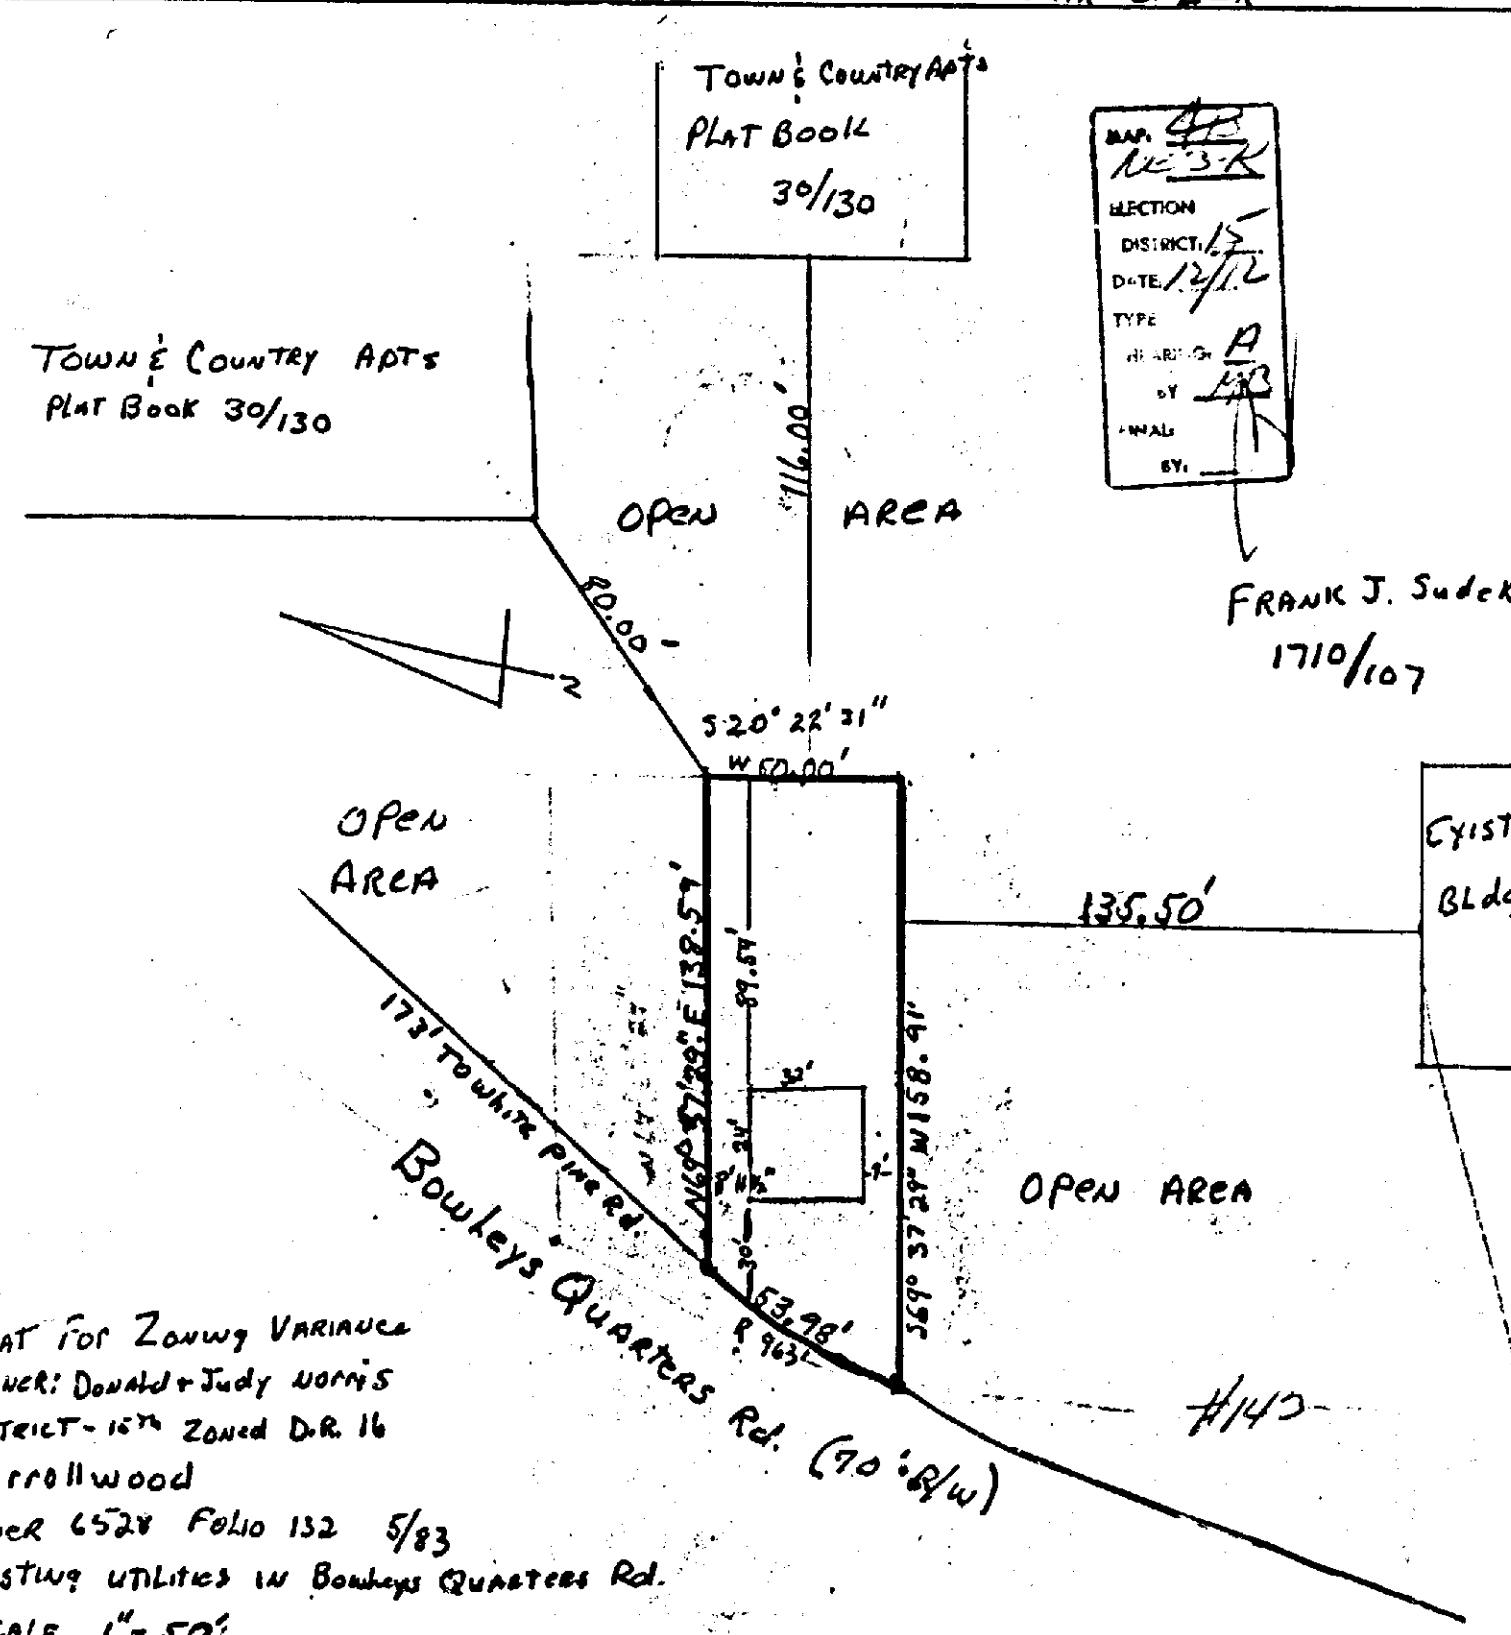 TOWN & COUNTRY APTS
PLAT BOOK
30/130
MAP:
NE 3-K
ELECTION
DISTRICT: 15
DATE: 12/12
TYPE
HEARING: A
BY
FINAL:
BY:
TOWN & COUNTRY APTS
PLAT BOOK 30/130
116.00'
OPEN AREA
80.00
FRANK J. Sudek
1710/107
S 20° 22' 31"
W 50.00'
OPEN
AREA
EXIST
BLdg
135.50'
N69° 37' 29" E 138.59'
89.54'
S69° 37' 29" W 158.91'
32'
24'
OPEN AREA
30'
173' TO White Pine Rd.
53.98'
R 963
Bowleys Quarters Rd. (70' R/W)
#143
AT For Zoning VARIANCE
NER: Donald + Judy Norris
TRICT - 15th Zoned D.R. 16
rrollwood
BER 6528 Folio 132 5/83
STING UTILITIES IN Bowleys QUARTERS Rd.
CALE 1" = 50'